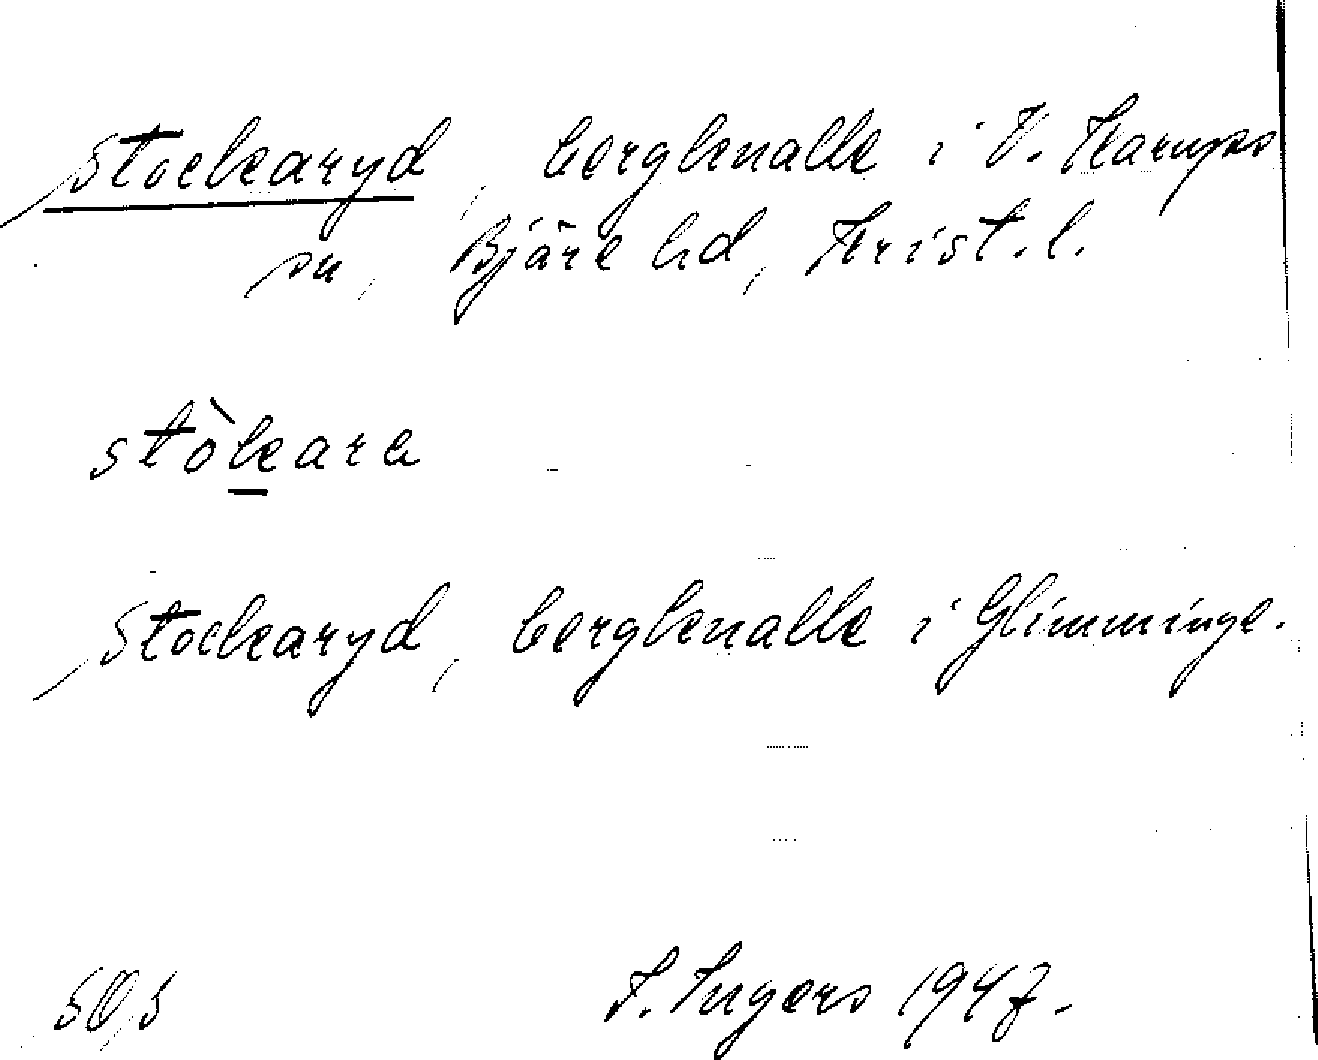 Stockaryd, bergknalle i V. Karups
sn, Bjäre hd, Krist. l.
stòkara
Stockaryd, bergknalle i Glimminge.
SO,S
I. Ingers 1947.